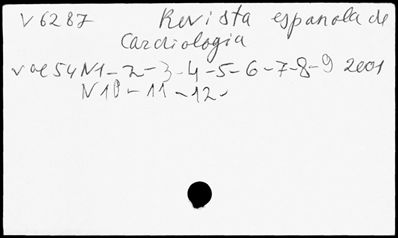 V6287 Revista espanola de
Cardiologia
vol 54 N1-2-3-4-5-6-7-8-9 2001
N10-11-12-